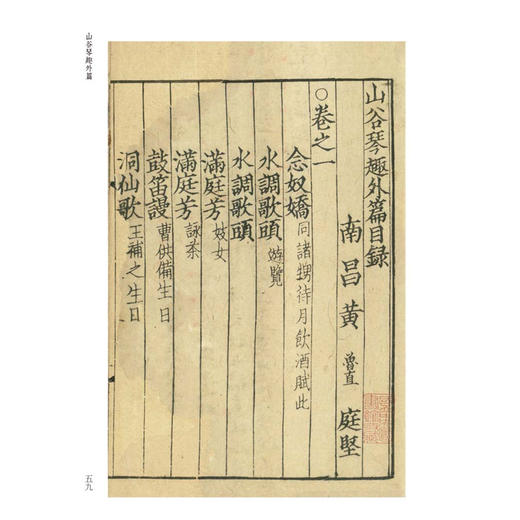 山谷琴趣外篇目録
南昌黄 魯直 庭堅
○卷之一
念奴嬌 同諸甥待月飲酒賦此
水調歌頭 遊覽
水調歌頭
滿庭芳 妓女
滿庭芳 詠茶
鼓笛謾 曹供備生日
洞仙歌 王補之生日
山谷琴趣外篇
五九